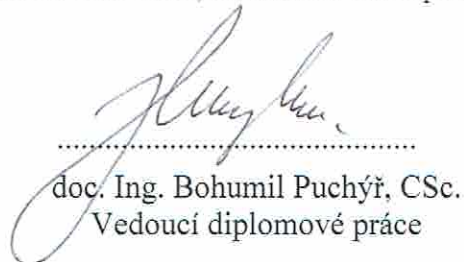 doc. Ing. Bohumil Puchýř, CSc.
Vedoucí diplomové práce